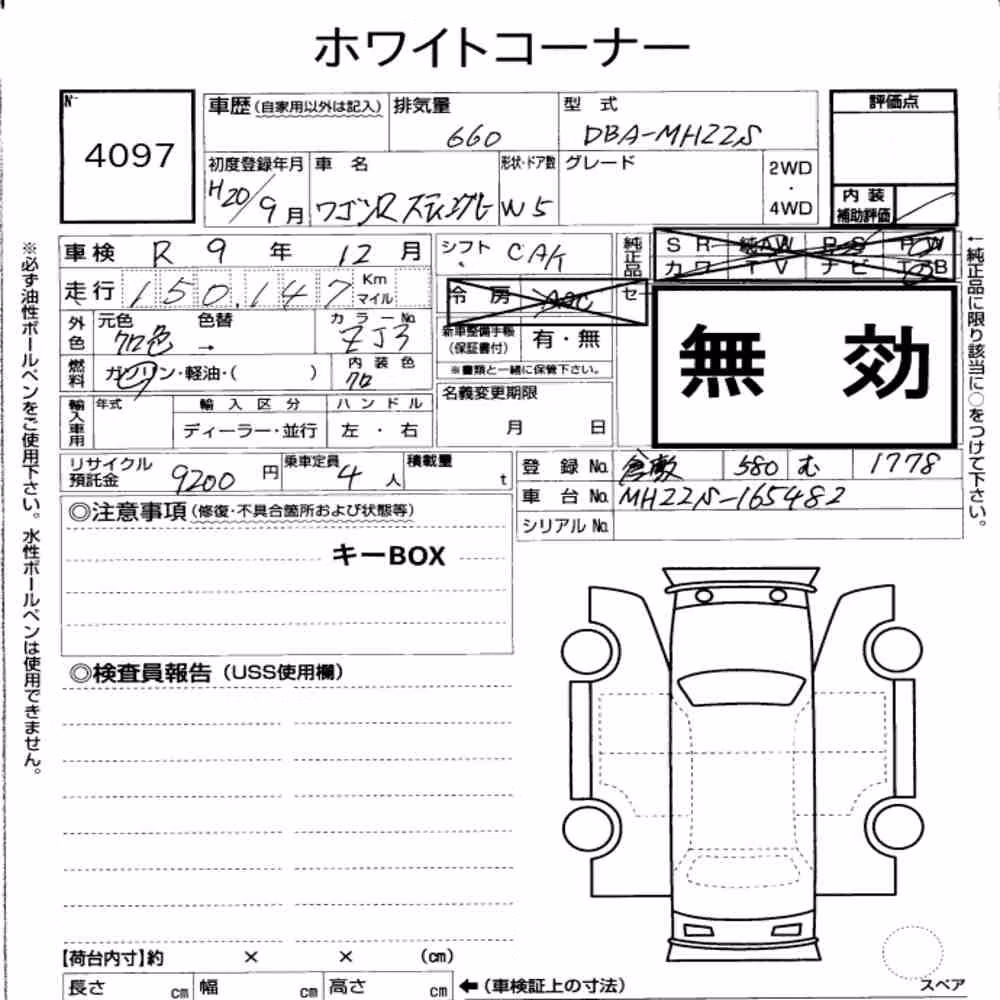 ホワイトコーナー
№
4097
車歴(自家用以外は記入)
排気量
660
型 式
DBA-MH22S
評価点
初度登録年月
H20/9月
車 名
ワゴンR スティングレー
形状・ドア数
W5
グレード
2WD
・
4WD
内 装
補助評価
車検 R 9 年 12 月
シフト CAK
純正品
SR 純AW PS PW
カワ TV ナビ エアB
走行 150,147 Km マイル
冷 房 AAC
セー
外色
元色 クロ色
色替 →
カラーNo. ZJ3
新車整備手帳
(保証書付)
有・無
※書類と一緒に保管下さい。
無 効
燃料
ガソリン・軽油・( )
内 装 色
クロ
輸入車用
年式
輸 入 区 分
ディーラー・並行
ハ ン ド ル
左 ・ 右
名義変更期限
月 日
リサイクル預託金 9200 円
乗車定員 4 人
積載量 t
登 録 No. 倉敷 580 む 1778
車 台 No. MH22S-165482
シリアル No.
◎注意事項(修復・不具合箇所および状態等)
キーBOX
◎検査員報告(USS使用欄)
【荷台内寸】約 × × (cm)
長さ cm 幅 cm 高さ cm
←(車検証上の寸法)
スペア
※必ず油性ボールペンをご使用下さい。水性ボールペンは使用できません。
←純正品に限り該当に○をつけて下さい。